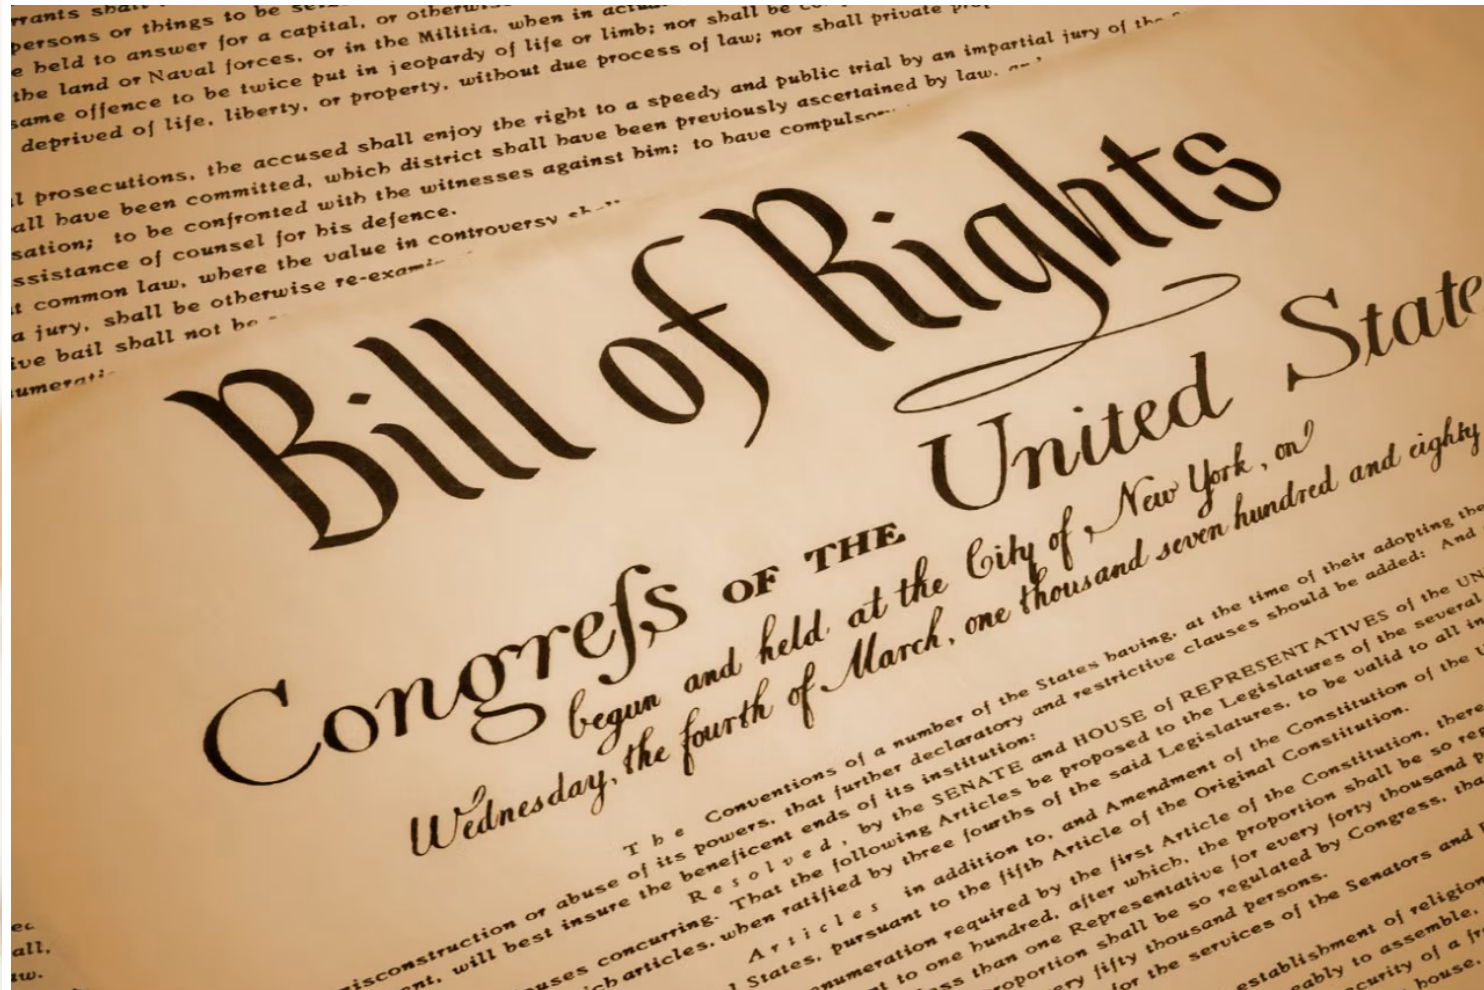 rrants shall
persons or things to be
e held to answer for a capital, or otherwise
the land or Naval forces, or in the Militia, when in actual
same offence to be twice put in jeopardy of life or limb; nor shall be
deprived of life, liberty, or property, without due process of law; nor shall private
l prosecutions, the accused shall enjoy the right to a speedy and public trial by an impartial jury of the
all have been committed, which district shall have been previously ascertained by law, and
sation; to be confronted with the witnesses against him; to have compulsor
ssistance of counsel for his defence.
t common law, where the value in controversy shall
a jury, shall be otherwise re-exami
ive bail shall not be
umerati
Bill of Rights
Congreſs OF THE United State
begun and held at the City of New York, on
Wednesday, the fourth of March, one thousand seven hundred and eighty
The Conventions of a number of the States having, at the time of their adopting the
isconstruction or abuse of its powers, that further declaratory and restrictive clauses should be added: And
ent, will best insure the beneficent ends of its institution:
Resolved, by the SENATE and HOUSE of REPRESENTATIVES of the UN
uses concurring. That the following Articles be proposed to the Legislatures of the several
ch articles, when ratified by three fourths of the said Legislatures, to be valid to all in
Articles in addition to, and Amendment of the Constitution of the U
States, pursuant to the fifth Article of the Original Constitution.
enumeration required by the first Article of the Constitution, there
t to one hundred, after which, the proportion shall be so reg
less than one Representative for every forty thousand p
roportion shall be so regulated by Congress, tha
ry fifty thousand persons.
for the services of the Senators and
establishment of religion
eably to assemble,
curity of a fr
house,
all,
aw.